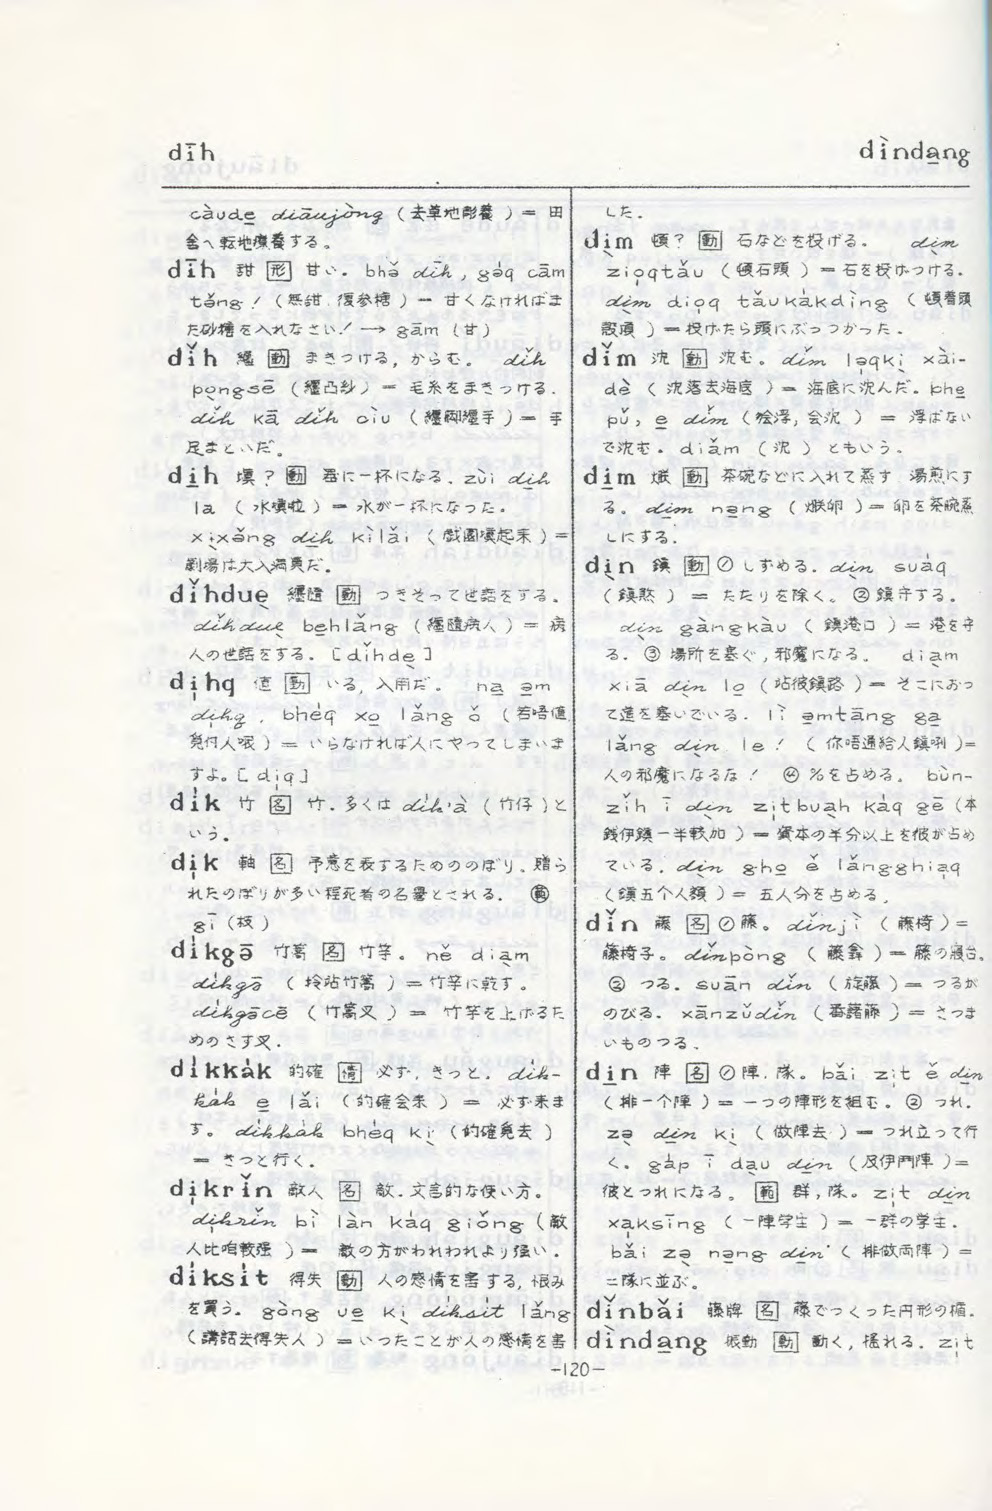 dīh
dìnda̱ng
càude̱ diāujòng (去草地彫養) = 田
舎へ転地療養する。
dīh 甜 [形] 甘い。bhǒ dih, ga̍q cām
tn̂g! (無甜,復參糖) = 甘くなければま
た砂糖を入れなさい! → gām (甘)
dǐh 纏 [動] まきつける,からむ。dǐh
po̍ngsē (纏凸紗) = 毛糸をまきつける.
dǐh kā dǐh ciu (纏脚纏手) = 手
足まといだ。
di̱h 塡? [動] 器に一杯になる. zùi di̱h
la (水塡啦) = 水が一杯になった。
xixn̂g di̱h kìlǎi (戯園塡起来) =
劇場は大入満員だ。
dǐhdue 纏隨 [動] つきそって世話をする.
dǐhdue be̱hlǎng (纏隨病人) = 病
人の世話をする. [dǐhde̱]
di̱hq 値 [動] いる,入用だ。na̱ əm
di̱hq, bhe̍q xo̱ lǎng ǒ (若唔値,
人哦) = いらなければ人にやってしまいま
すよ。[diq]
dik 竹 [名] 竹.多くは dik'à (竹仔) と
いう。
dik 軸 [名] 弔意を表するためののぼり.贈ら
れたのぼりが多い程死者の名誉とされる. [範]
gī (枝)
dikgō 竹篙 [名] 竹竿。ně diàm
dikgō (站竹篙) = 竹竿に乾す。
dikgōcē (竹篙叉) = 竹竿を上げるた
めのさす叉.
dikka̍k 的確 [情] 必ず,きっと。dik-
ka̍k e̱ lǎi (的確会来) = 必ず来ま
す。dikka̍k bhe̍q ki (的確去)
= きっと行く。
dikrǐn 敵人 [名] 敵.文言的な使い方。
dikrǐn bì làn ka̍q giǒng (敵
人比咱較强) = 敵の方がわれわれより強い.
diksit 得失 [動] 人の感情を害する,恨み
を買う。gòng ue̱ ki diksit lǎng
(講話去得失人) = いったことが人の感情を害
した.
dìm 頓? [動] 石などを投げる. dìm
zioqtǎu (頓石頭) = 石を投げつける.
dìm dioq tǎuka̍kdìng (頓著頭
殼頂) = 投げたら頭にぶっつかった.
dǐm 沈 [動] 沈む。dǐm lo̍qki xài-
dè (沈落去海底) = 海底に沈んだ。bhe̱
pǔ, e̱ dǐm (浮,会沉) = 浮ばない
で沈む. diǎm (沉) ともいう。
di̱m 燉 [動] 茶碗などに入れて蒸す,湯煎にす
る。di̱m nə̱ng (卵) = 卵を茶碗蒸
しにする.
din 鎮 [動] ① しずめる. din suàq
(鎮煞) = たたりを除く。② 鎮守する。
din gàngkàu (鎮港口) = 港を守
る. ③ 場所を塞ぐ,邪魔になる。diàm
xiā din lo̱ (站彼鎮路) = そこにおっ
て道を塞いでいる. lì əmtāng ga̱
lǎng din le! (你唔通給人鎮咧) =
人の邪魔になるな! ④ %を占める。bùn-
zǐh ī din zi̍tbua̱h ka̍q gē (本
銭伊鎮一半較加) = 資本の半分以上を彼が占め
ている. din gho̱ ě lǎngghiaq
(鎮五个人額) = 五人分を占める.
dǐn 藤 [名] ① 藤。dǐnjì (藤椅) =
藤椅子。dǐnpòng (藤) = 藤の寝台.
② つる. suān dǐn (旋藤) = つるが
のびる. xānzǔdǐn (番藷藤) = さつま
いものつる.
di̱n 陣 [名] ① 陣.隊。bǎi zit ě di̱n
(排一个陣) = 一つの陣形を組む。② つれ.
zə di̱n ki (做陣去) = つれ立って行
く。ga̍p ī dàu di̱n (及伊鬥陣) =
彼とつれになる。[範] 群,隊。zit di̱n
xa̍ksīng (一陣学生) = 一群の学生.
bǎi zə nə̱ng di̱n (排做両陣) =
二隊に並ぶ。
dǐnbǎi 藤牌 [名] 藤でつくった円形の楯.
dìnda̱ng 振動 [動] 動く,揺れる. zit
-120-